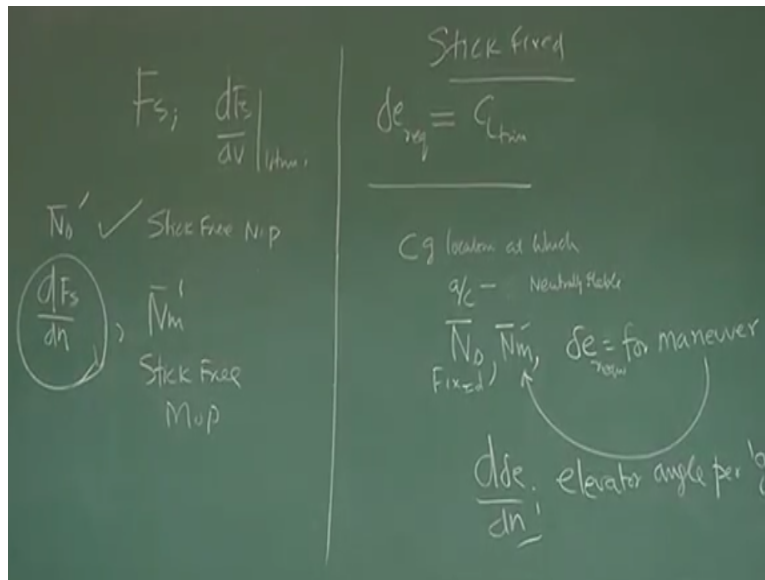 Fs, dFs/dv|trim.
N̄o' ✓ Stick Free N.P
dFs/dn , N̄m'
Stick Free
M.P
Stick fixed
δe req = CL trim
Cg location at which
a/c – Neutrally stable
N̄o, N̄m, δe requ = for maneuver
Fixed
dδe/dn' elevator angle per